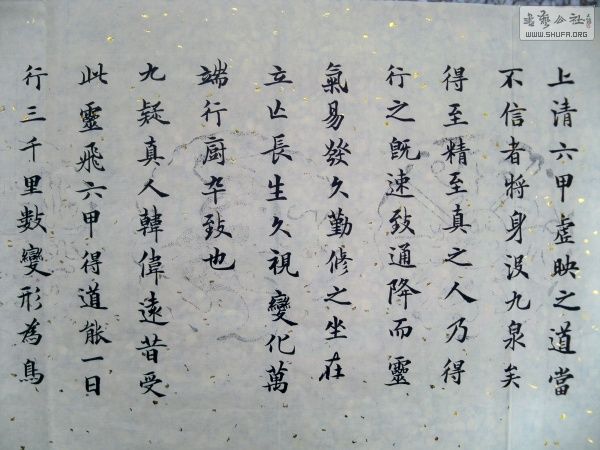 上清六甲虚映之道當
不信者将身没九泉矣
得至精至真之人乃得
行之既速致通降而靈
氣易發久勤修之坐在
立亡長生久視變化萬
端行厨卒致也
九疑真人韓偉遠昔受
此靈飛六甲得道能一日
行三千里数變形為鳥
書藝公社
WWW.SHUFA.ORG